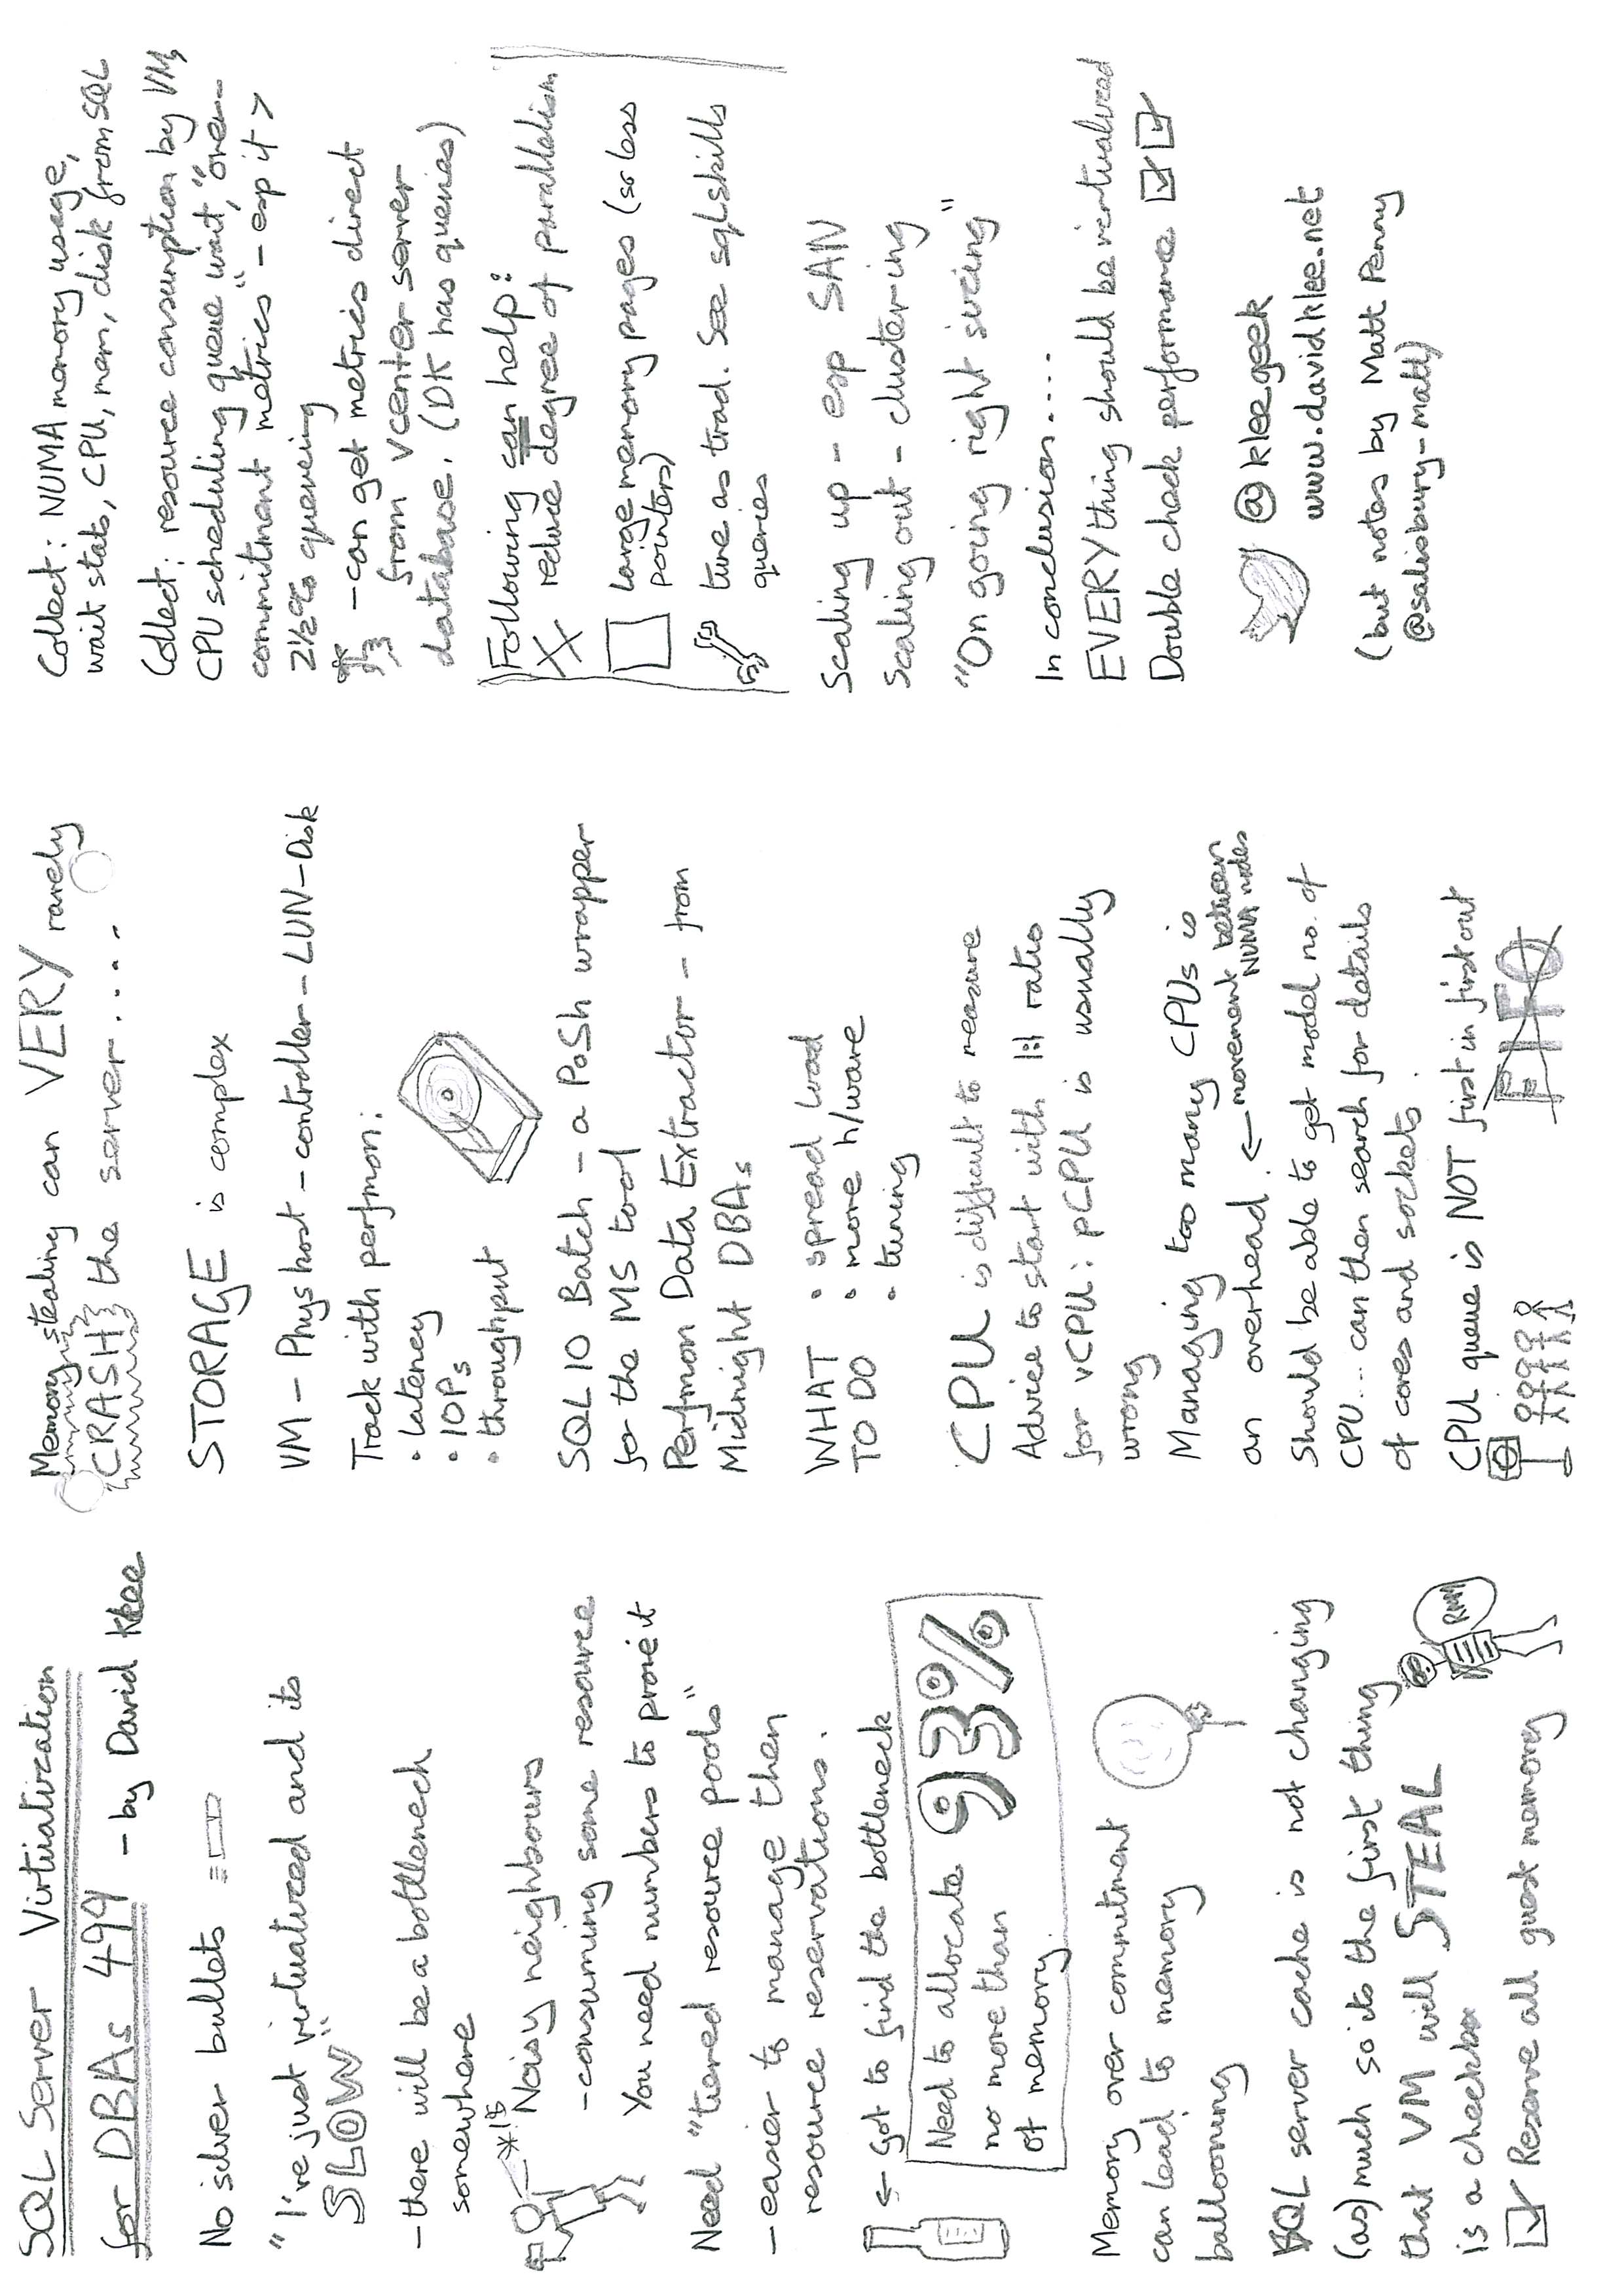 SQL Server Virtualization
for DBAs 499 - by David Klee
No silver bullets
"I've just virtualized and its
SLOW"
- there will be a bottleneck
somewhere
*!$
Noisy neighbours
- consuming some resource
You need numbers to prove it
Need "tiered resource pools"
- easier to manage then
resource reservations.
← Got to find the bottleneck
Need to allocate
no more than
93%
of memory.
Memory over commitment
can lead to memory
ballooning
SQL server cache is not changing
(as) much so its the first thing
that VM will STEAL
is a checkbox
Reserve all guest memory
RAM
Memory stealing can VERY rarely
CRASH the server....
STORAGE is complex
VM - Phys host - controller - LUN - Disk
Track with perfmon:
• latency
• IOPs
• throughput
SQL IO Batch - a PoSh wrapper
for the MS tool
Perfmon Data Extractor - from
Midnight DBAs
WHAT
TO DO
• spread load
• more h/ware
• tuning
CPU is difficult to measure
Advice to start with 1:1 ratio
for vCPU: pCPU is usually
wrong
Managing too many CPUs is
an overhead. ← movement between
NUMA nodes
Should be able to get model no. of
CPU... can then search for details
of cores and sockets.
CPU queue is NOT first in first out
FIFO
Collect: NUMA memory usage,
wait stats, CPU, mem, disk from SQL
Collect: resource consumption by VM,
CPU scheduling queue wait, "over-
commitment metrics" - esp if >
2½% queueing
- can get metrics direct
from vcenter server
database. (DK has queries)
Following can help:
reduce degree of parallelism
large memory pages (so less
pointers)
tune as trad. See sqlskills
queries
Scaling up - esp SAN
Scaling out - clustering
"On going right sizing"
In conclusion....
EVERYthing should be virtualized
Double check performance
@kleegeek
www.davidklee.net
(but notes by Matt Penny
@salisbury-matt)